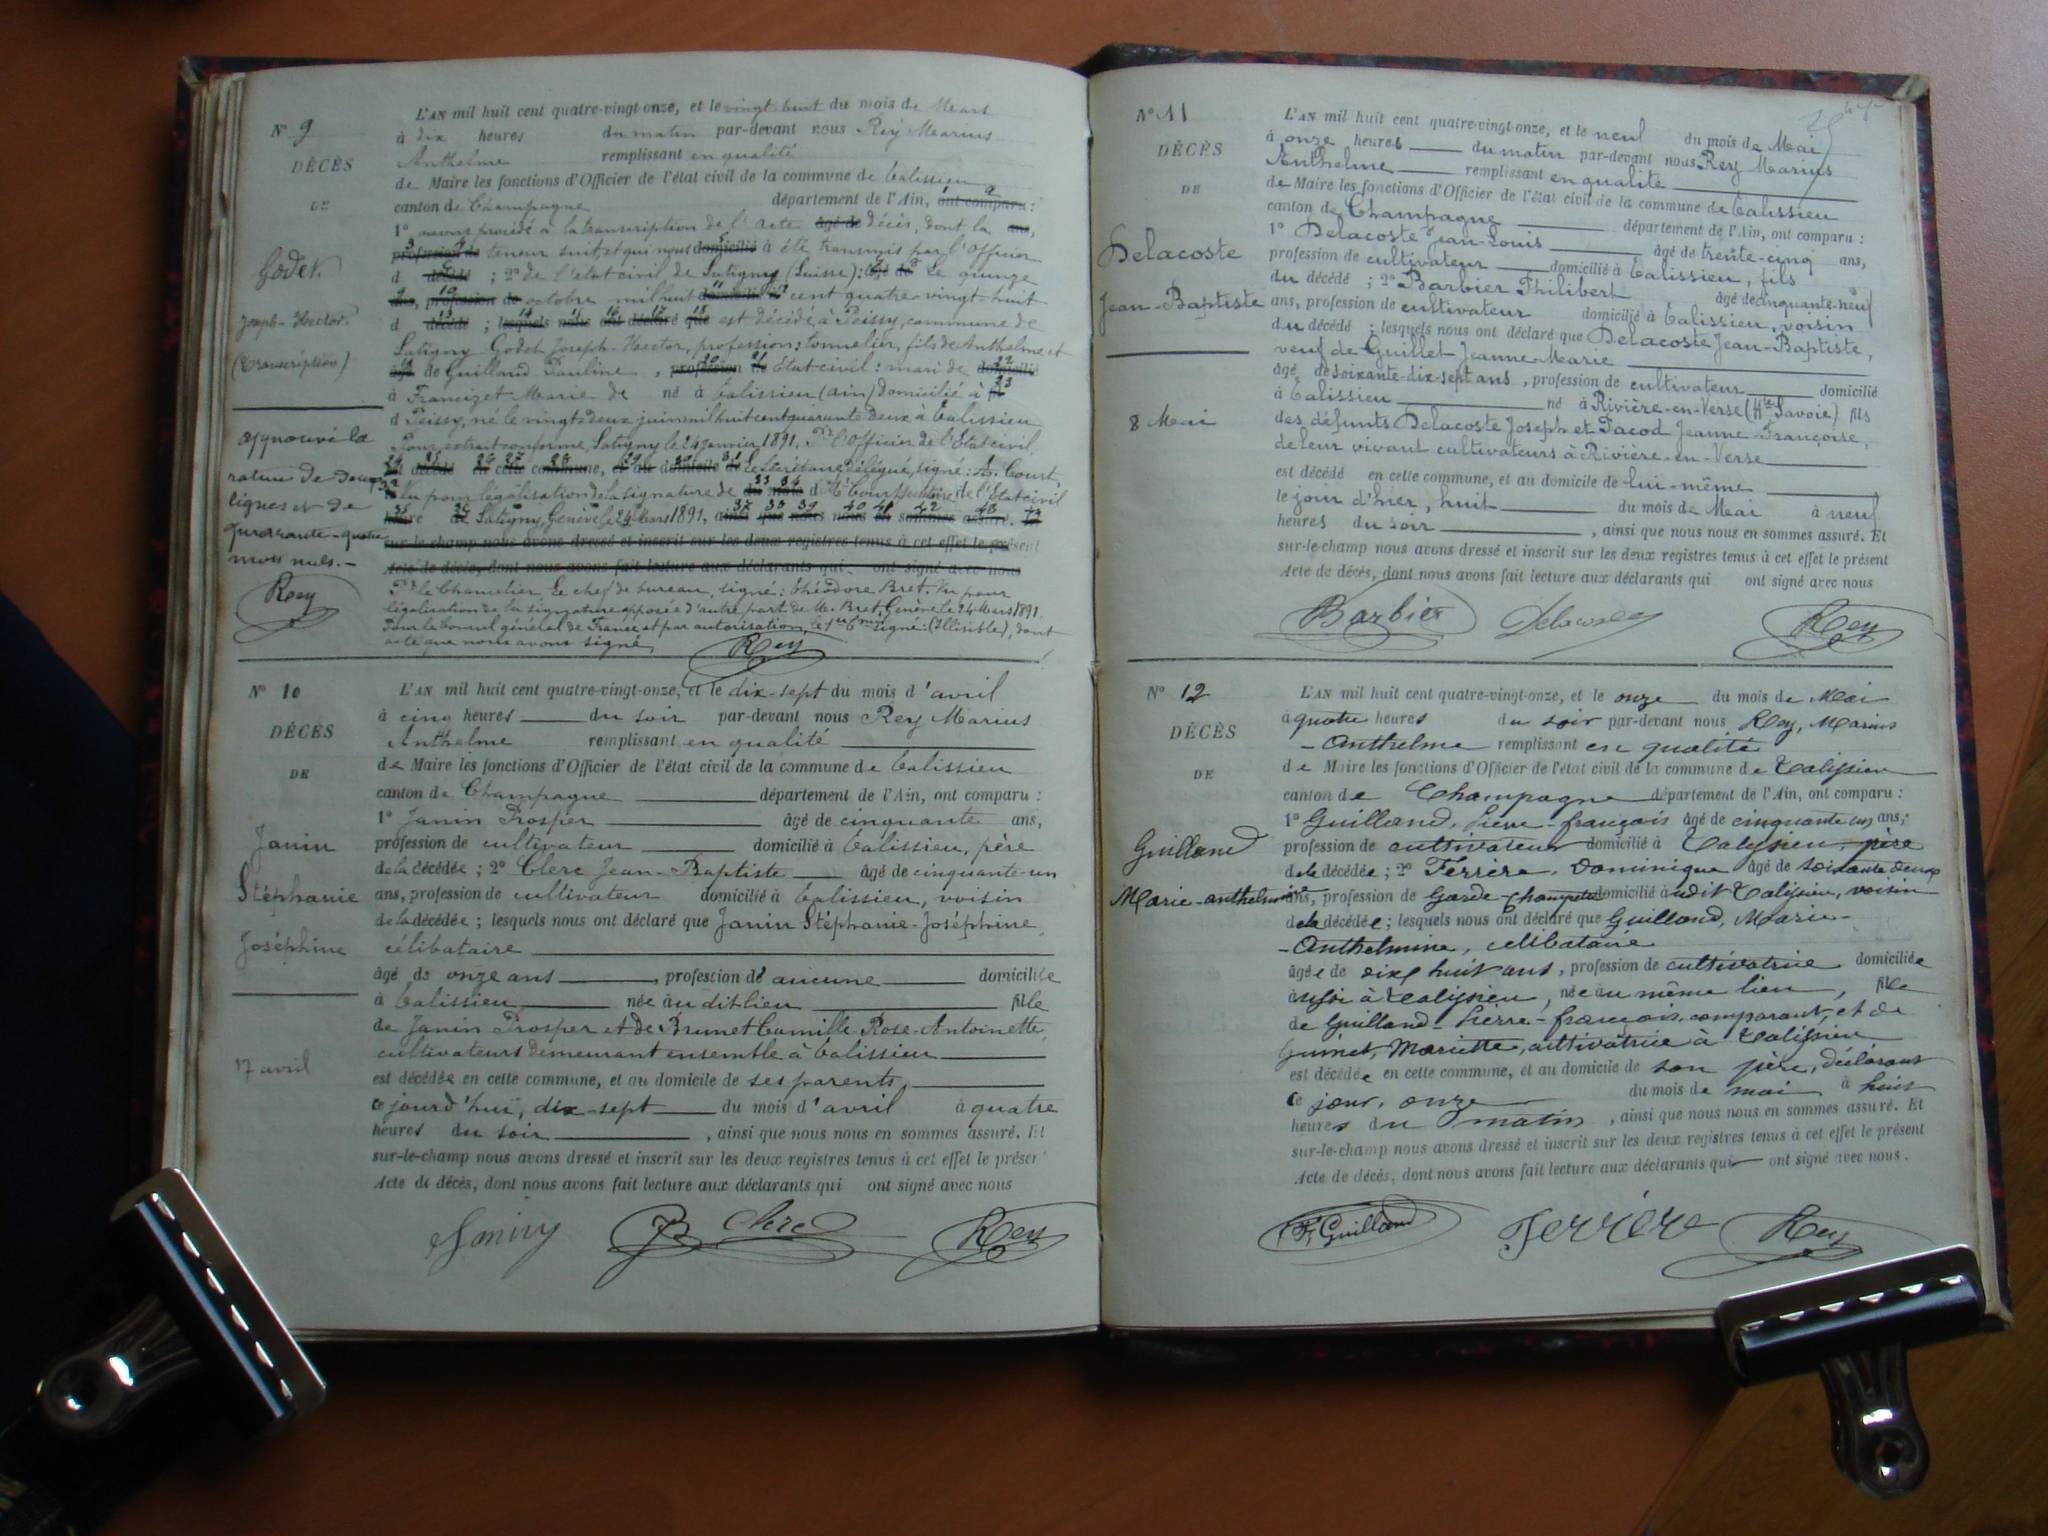 N° 9
DÉCÈS
DE
Godet
Joseph-Hector
(transcription)
approuvé la
rature de deux
lignes et de
quarante-quatre
mots nuls. –
Rey
L'AN mil huit cent quatre-vingt-onze, et le vingt huit du mois de Mars
à dix heures du matin par-devant nous Rey Marius
Anthelme remplissant en qualité
de Maire les fonctions d'Officier de l'état civil de la commune de Talissieu
canton de Champagne département de l'Ain, ont comparu :
1° avons procédé à la transcription de l'acte âgé de décès, dont la ans,
profession de teneur suit, et qui nous domicilié à été transmis par l'Officier
d décédé ; 2° de l'état civil de Satigny (Suisse) : âgé de Le quinze
ans, profession de octobre mil huit domicilié à cent quatre-vingt-huit
d décédé ; lesquels nous ont déclaré que est décédé, à Peissy, commune de
Satigny Godet Joseph-Hector, profession : tonnelier, fils de Anthelme et
âgé de Guilland Pauline, profession de Etat civil : mari de domicilié
à Francizet Marie de né à Talissieu (Ain) domicilié à fil
d Peissy, né le vingt-deux juin mil huit cent quarante deux à Talissieu
Pour extrait conforme, Satigny le 24 Janvier 1891. Pr l'Officier de l'Etat civil
est décédé en cette commune, et au domicile de Le Secrétaire délégué, signé : A. Court,
Vu pour légalisation de la signature de du mois d Mr Court Secrétaire de l'Etat civil
heure de Satigny, Genève le 24 Mars 1891, ainsi que nous nous en sommes assuré. Et
sur-le-champ nous avons dressé et inscrit sur les deux registres tenus à cet effet le présent
Acte de décès, dont nous avons fait lecture aux déclarants qui ont signé avec nous
Pr le Chancelier, Le chef de bureau, signé : Théodore Bret. Vu pour
légalisation de la signature apposée d'autre part de M. Bret, Genève le 24 Mars 1891.
Pour le Consul général de France et par autorisation, signé : (Illisible), dont
acte que nous avons signé
Rey
N° 10
DÉCÈS
DE
Janin
Stéphanie
Joséphine
17 avril
L'AN mil huit cent quatre-vingt-onze, et le dix-sept du mois d'avril
à cinq heures du soir par-devant nous Rey Marius
Anthelme remplissant en qualité
de Maire les fonctions d'Officier de l'état civil de la commune de Talissieu
canton de Champagne département de l'Ain, ont comparu :
1° Janin Prosper âgé de cinquante ans,
profession de cultivateur domicilié à Talissieu, père
de la décédée ; 2° Clerc Jean-Baptiste âgé de cinquante-un
ans, profession de cultivateur domicilié à Talissieu, voisin
de la décédée ; lesquels nous ont déclaré que Janin Stéphanie-Joséphine,
célibataire
âgé de onze ans, profession de aucune domiciliée
à Talissieu née au dit lieu fille
de Janin Prosper et de Brunet Camille Rose-Antoinette,
cultivateurs demeurant ensemble à Talissieu
est décédée en cette commune, et au domicile de ses parents,
ce jourd'hui, dix-sept du mois d'avril à quatre
heures du soir, ainsi que nous nous en sommes assuré. Et
sur-le-champ nous avons dressé et inscrit sur les deux registres tenus à cet effet le présent
Acte de décès, dont nous avons fait lecture aux déclarants qui ont signé avec nous
JB Clerc Rey
N° 11
DÉCÈS
DE
Delacoste
Jean-Baptiste
8 Mai
L'AN mil huit cent quatre-vingt-onze, et le neuf du mois de Mai
à onze heures du matin par-devant nous Rey Marius
Anthelme remplissant en qualité
de Maire les fonctions d'Officier de l'état civil de la commune de Talissieu
canton de Champagne département de l'Ain, ont comparu :
1° Delacoste Jean-Louis âgé de trente-cinq ans,
profession de cultivateur domicilié à Talissieu, fils
du décédé ; 2° Barbier Philibert âgé de cinquante-neuf
ans, profession de cultivateur domicilié à Talissieu, voisin
du décédé ; lesquels nous ont déclaré que Delacoste Jean-Baptiste,
veuf de Guillet Jeanne-Marie
âgé de soixante-dix-sept ans, profession de cultivateur domicilié
à Talissieu né à Rivière-en-Verse (Hte Savoie) fils
des défunts Delacoste Joseph et Pacod Jeanne-Françoise,
de leur vivant cultivateurs à Rivière-en-Verse
est décédé en cette commune, et au domicile de lui-même
le jour d'hier, huit du mois de Mai à neuf
heures du soir, ainsi que nous nous en sommes assuré. Et
sur-le-champ nous avons dressé et inscrit sur les deux registres tenus à cet effet le présent
Acte de décès, dont nous avons fait lecture aux déclarants qui ont signé avec nous
Barbier Delacoste Rey
N° 12
DÉCÈS
DE
Guilland
Marie-anthelmine
L'AN mil huit cent quatre-vingt-onze, et le onze du mois de Mai
à quatre heures du soir par-devant nous Rey, Marius
-Anthelme remplissant en qualité
de Maire les fonctions d'Officier de l'état civil de la commune de Talissieu
canton de Champagne département de l'Ain, ont comparu :
1° Guilland, Pierre-françois âgé de cinquante un ans,
profession de cultivateur domicilié à Talissieu, père
de la décédée ; 2° Ferrère, Dominique âgé de soixante deux
ans, profession de Garde-champêtre domicilié à udit Talissieu, voisin
de la décédée ; lesquels nous ont déclaré que Guilland, Marie-
-Anthelmine, célibataire
âgée de dix huit ans, profession de cultivatrice domiciliée
à Talissieu, née au même lieu, fille
de Guilland-Pierre-françois, comparant, et de
Guinet, Mariette, cultivatrice à Talissieu
est décédée en cette commune, et au domicile de son père, déclarant
ce jour, onze du mois de mai à huit
heures du matin, ainsi que nous nous en sommes assuré. Et
sur-le-champ nous avons dressé et inscrit sur les deux registres tenus à cet effet le présent
Acte de décès, dont nous avons fait lecture aux déclarants qui ont signé avec nous.
F. Guilland Ferrère Rey